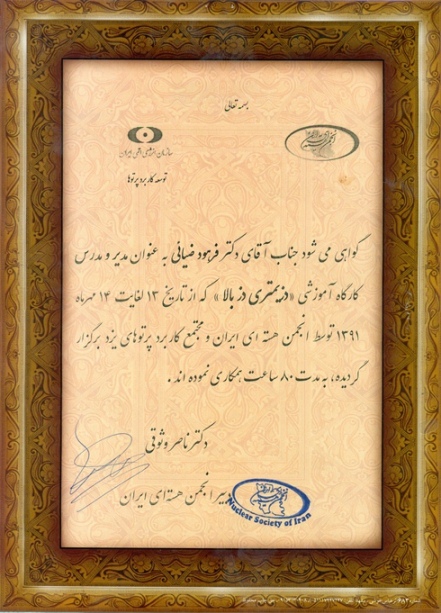 بسمه تعالی
سازمان انرژی اتمی ایران
توسعه کاربرد پرتوها
گواهی می شود جناب آقای دکتر فرهود ضیائی به عنوان مدیر و مدرس
کارگاه آموزشی «دزیمتری دز بالا» که از تاریخ ۱۳ لغایت ۱۴ مهرماه
۱۳۹۱ توسط انجمن هسته ای ایران و مجتمع کاربرد پرتوهای یزد برگزار
گردیده، به مدت ۸۰ ساعت همکاری نموده اند.
دکتر ناصر وثوقی
دبیر انجمن هسته ای ایران
Nuclear Society of Iran